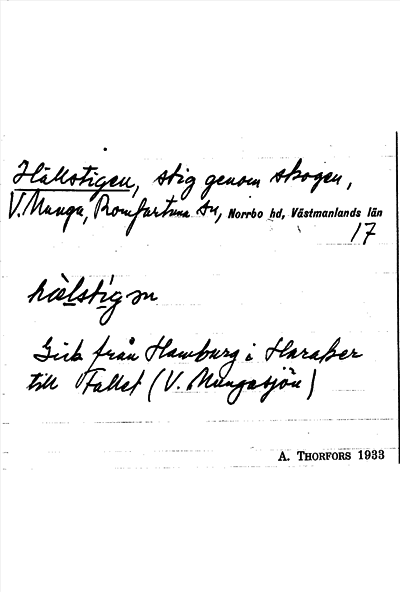 Hällstigen, stig genom skogen,
V. Munga, Romfartuna sn, Norrbo hd, Västmanlands län
17
hälstigən
Gick från Hamburg i Haraker
till Fallet (V. Mungasjön)
A. THORFORS 1933